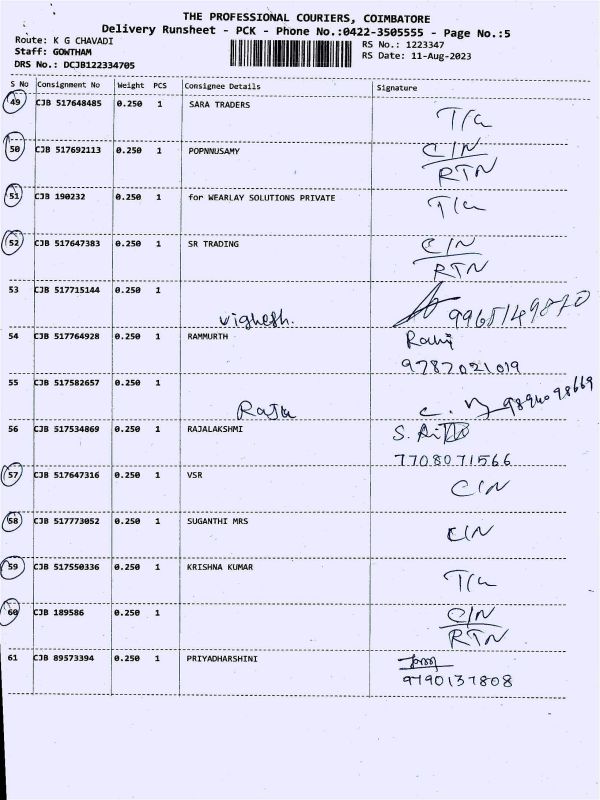 THE PROFESSIONAL COURIERS, COIMBATORE
Delivery Runsheet - PCK - Phone No.:0422-3505555 - Page No.:5
Route: K G CHAVADI
RS No.: 1223347
Staff: GOWTHAM
RS Date: 11-Aug-2023
DRS No.: DCJB122334705
S No Consignment No Weight PCS Consignee Details Signature
49 CJB 517648485 0.250 1 SARA TRADERS
T/C
50 CJB 517692113 0.250 1 POPNNUSAMY C/N
RTN
51 CJB 190232 0.250 1 for WEARLAY SOLUTIONS PRIVATE T/C
52 CJB 517647383 0.250 1 SR TRADING C/N
RTN
53 CJB 517715144 0.250 1
Vighesh.
54 CJB 517764928 0.250 1 RAMMURTH
9787021019
55 CJB 517582657 0.250 1
Raju
56 CJB 517534869 0.250 1 RAJALAKSHMI
7708071566
57 CJB 517647316 0.250 1 VSR C/N
58 CJB 517773052 0.250 1 SUGANTHI MRS C/N
59 CJB 517550336 0.250 1 KRISHNA KUMAR T/C
60 CJB 189586 0.250 1 C/N
RTN
61 CJB 89573394 0.250 1 PRIYADHARSHINI
9790137808